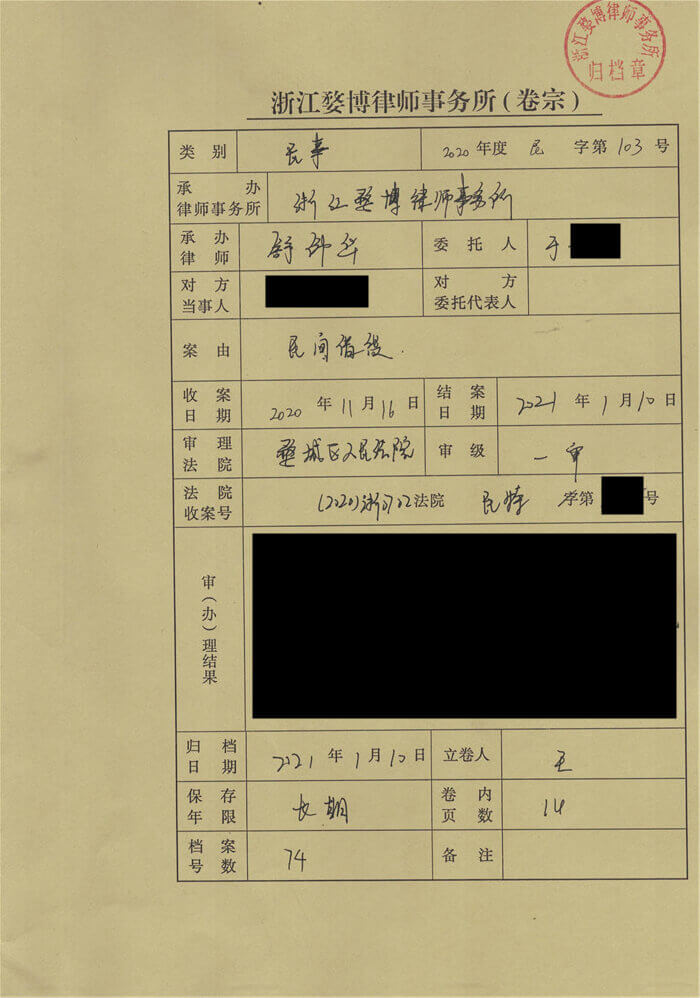 浙江婺博律师事务所
归档章
浙江婺博律师事务所(卷宗)
类别 民事 2020年度 民 字第103号
承办律师事务所 浙江婺博律师事务所
承办律师 舒 华 委托人 于
对方当事人 对方委托代表人
案由 民间借贷.
收案日期 2020年11月16日 结案日期 2021年1月10日
审理法院 婺城区人民法院 审级 一审
法院收案号 (2020)浙0702法院 民 字第 号
审(办)理结果
归档日期 2021年1月10日 立卷人 王
保存年限 长期 卷内页数 14
档案号数 74 备注